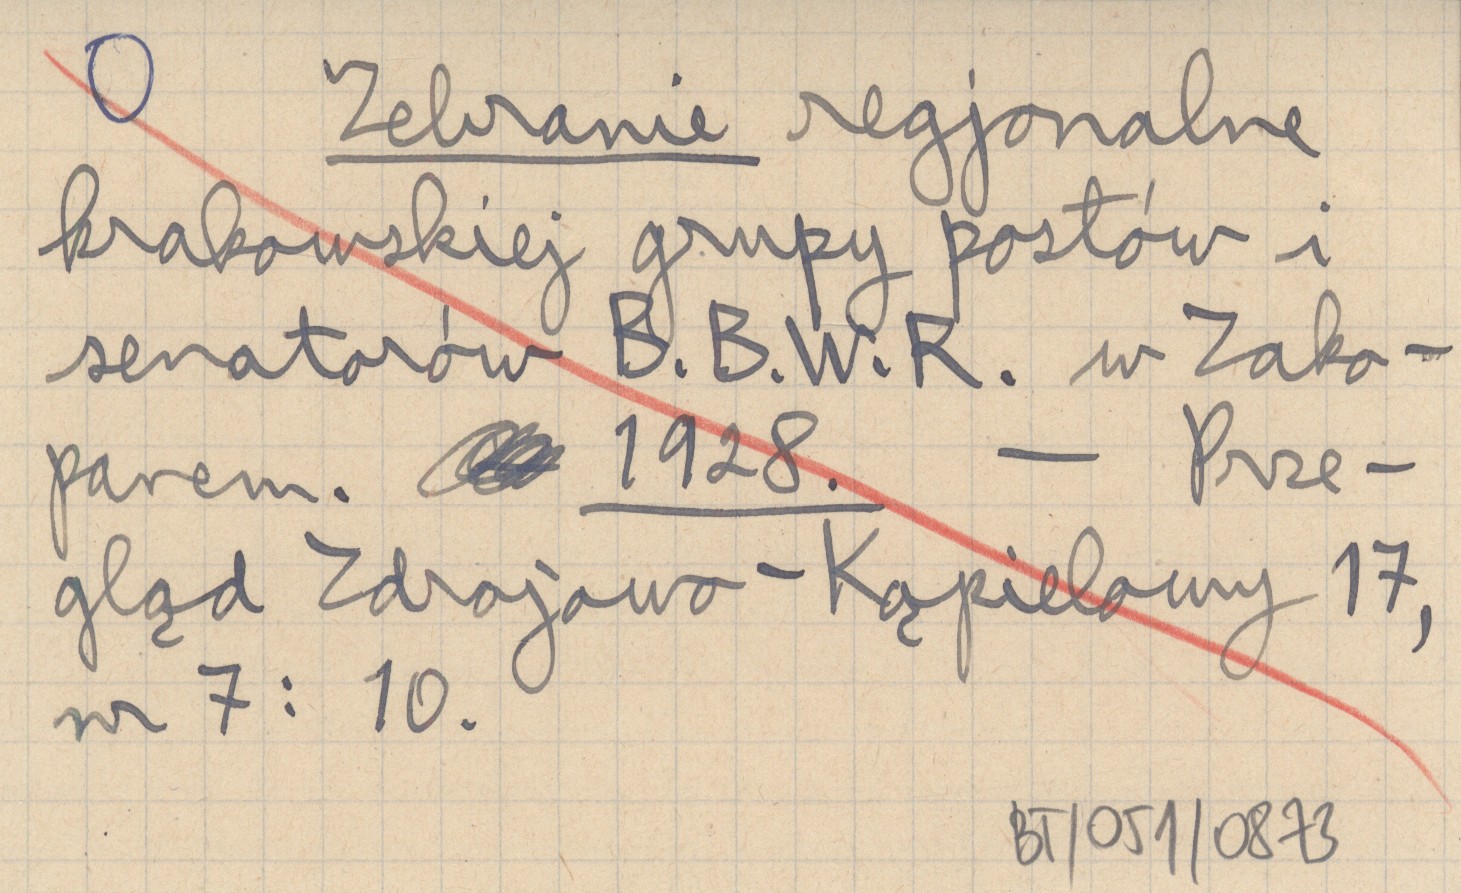 Zebranie regjonalne
krakowskiej grupy posłów i
senatorów B.B.W.R. w Zako-
panem. 1928. — Prze-
gląd Zdrojowo-Kąpielowy 17,
nr 7: 10.
BT/051/0873